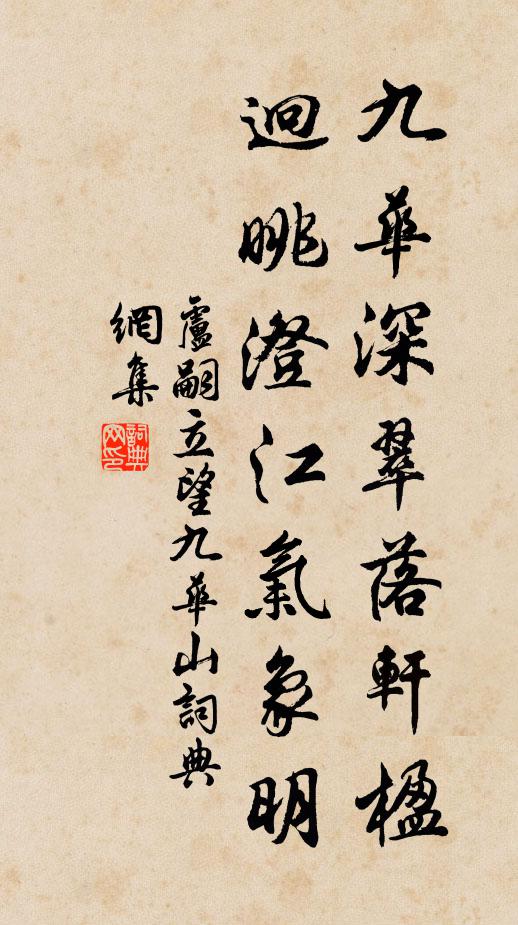 九華深翠落軒楹
迥眺澄江氣象明
盧嗣立望九華山詞典
網集
詞典
网印